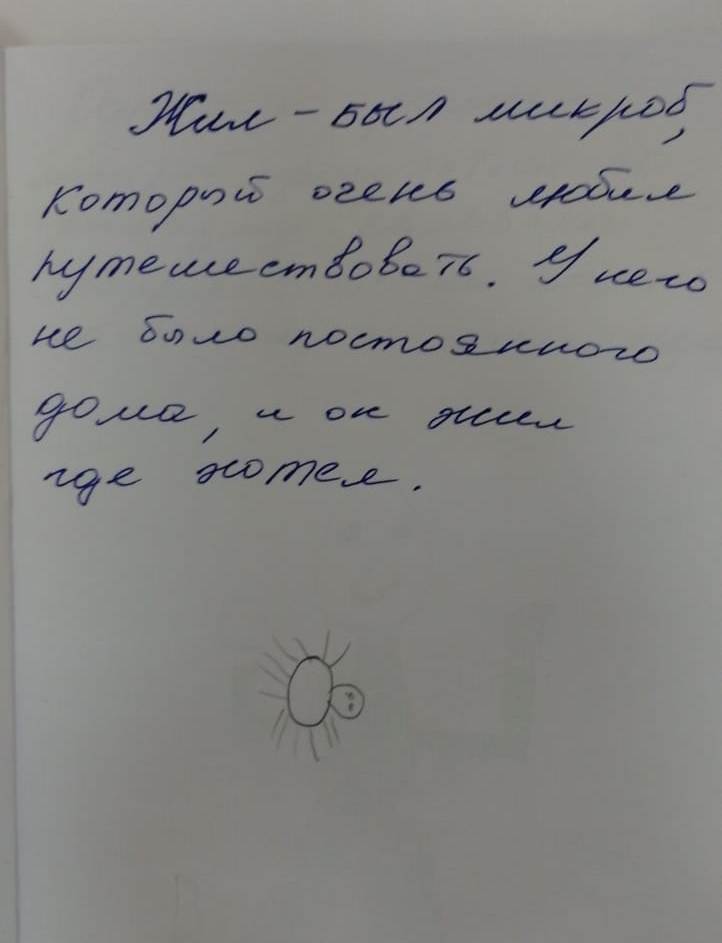 Жил - был микроб,
который очень любил
путешествовать. У него
не было постоянного
дома, и он жил
где хотел.